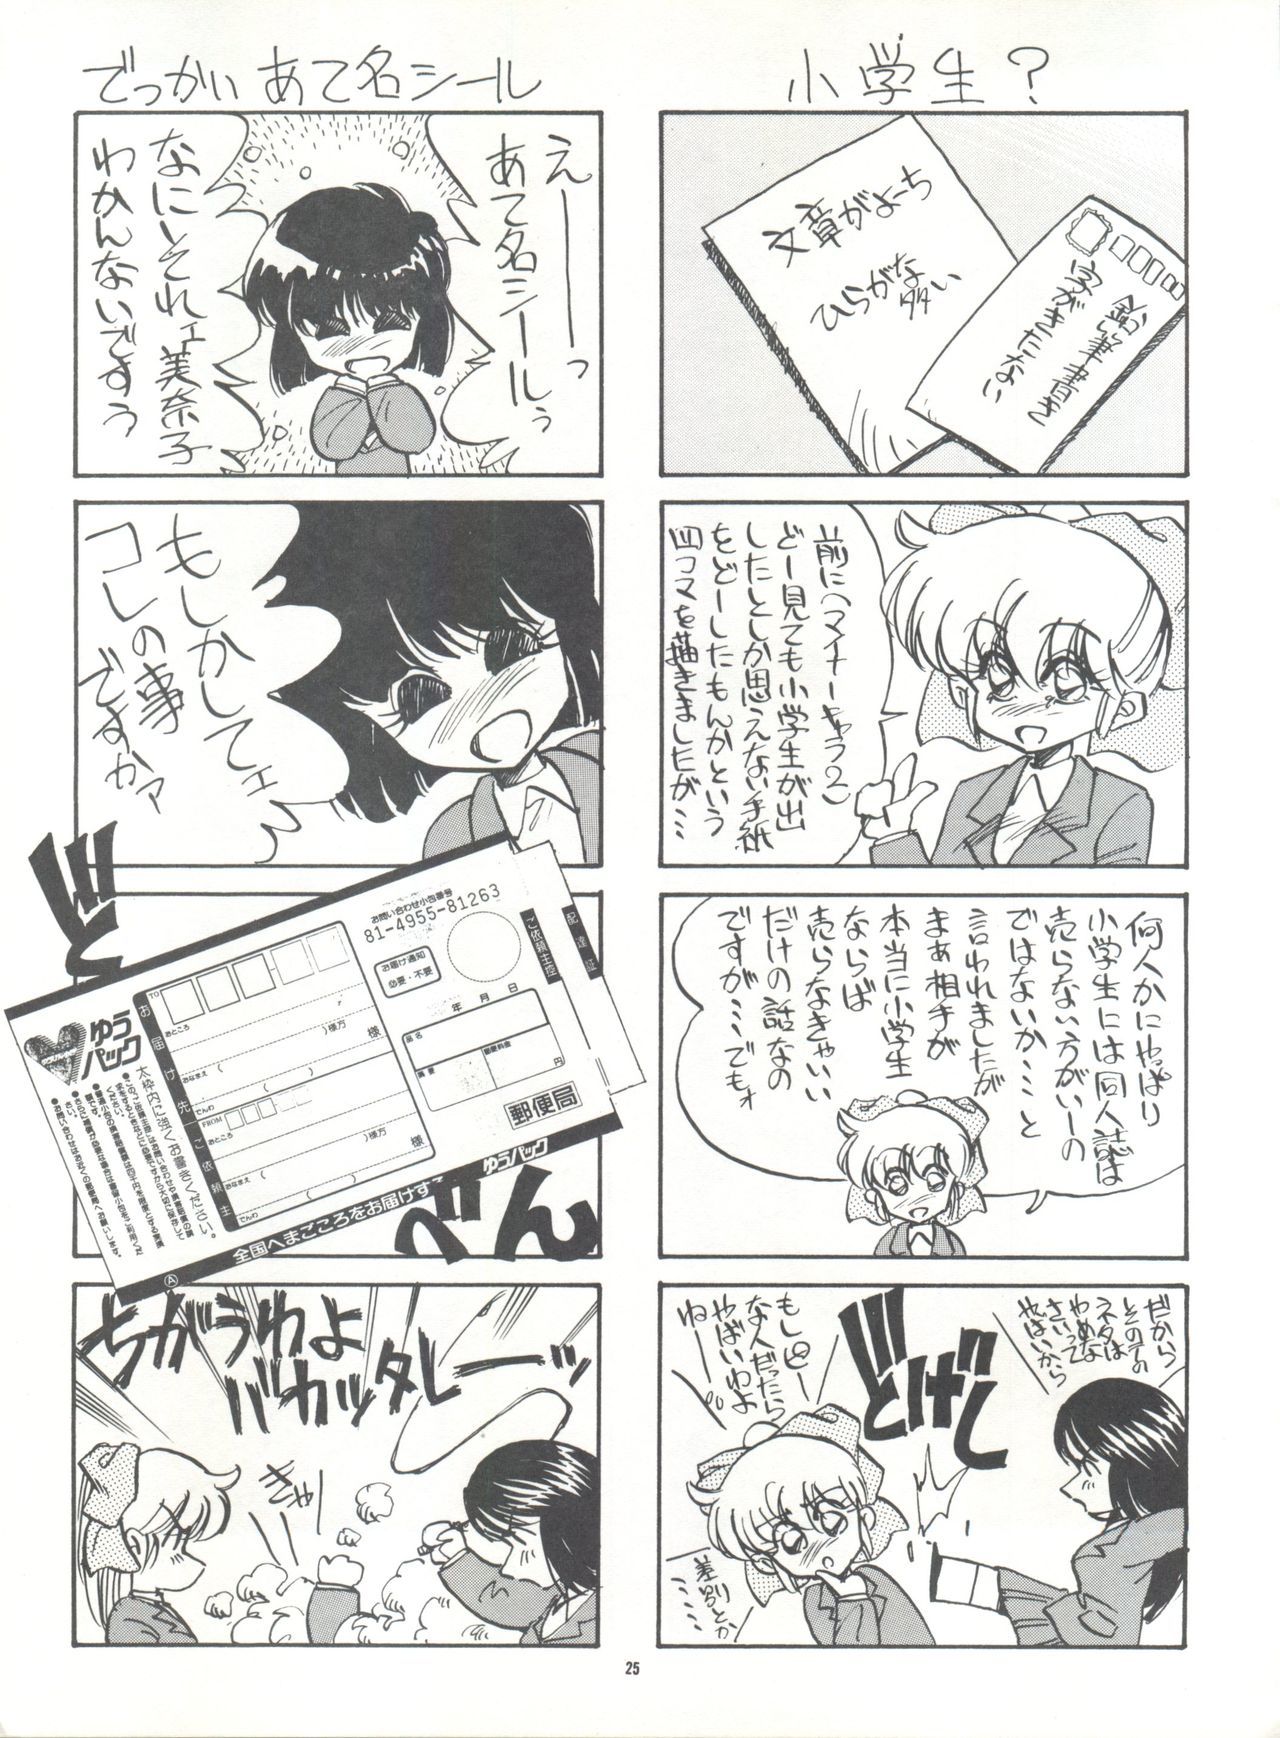 小学生？
文章がよーち
ひらがな
多い
鉛筆書き
字がきたない
前に（マイナーキャラ２）
どー見ても小学生が出
したとしか思えない手紙
をどーしたもんかという
四コマを描きましたが…
何人かにやっぱり
小学生には同人誌は
売らない方がいーの
ではないか…と
言われましたが
まぁ相手が
本当に小学生
ならば
売らなきゃいい
だけの話なの
ですが…でもォ
だから
その手の
ネタは
やめな
さいって
やばいから
どげし
もしピー
な人だったら
やばいわよ
ねー
差別とか
……
でっかいあて名シール
えーーーっ
あて名シールぅ
なにいそれェ美奈子
わかんないですぅ
もしかしてェ
コレの事
ですかァ
どど
べん
お問い合わせ小包番号
81-4955-81263
お届け通知
必要・不要
ご依頼主控
配達証
年 月 日
品名
摘要
円
郵便局
ゆうパック
TO
お届け先
おところ
（ ）様方
様
おなまえ（ ）
でんわ
FROM
ご依頼主
おところ
（ ）様方
様
おなまえ（ ）
でんわ
ゆうパック
太枠内に強くお書きください。
全国へまごころをお届けする
Ⓐ
ちがうわよ
バカッタレーッ
きゃー
25